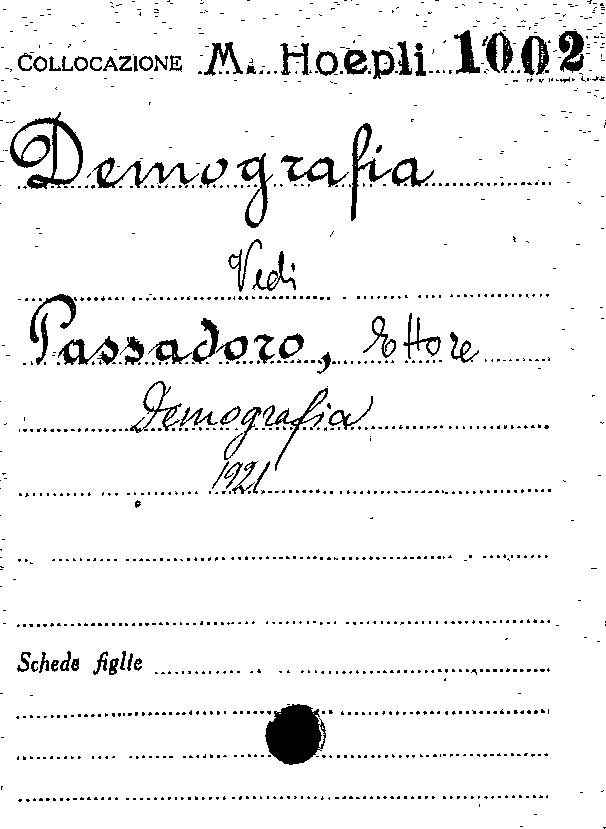 COLLOCAZIONE M. Hoepli 1002
Demografia
Vedi
Passadoro, Ettore
Demografia
1921
Schede figlie